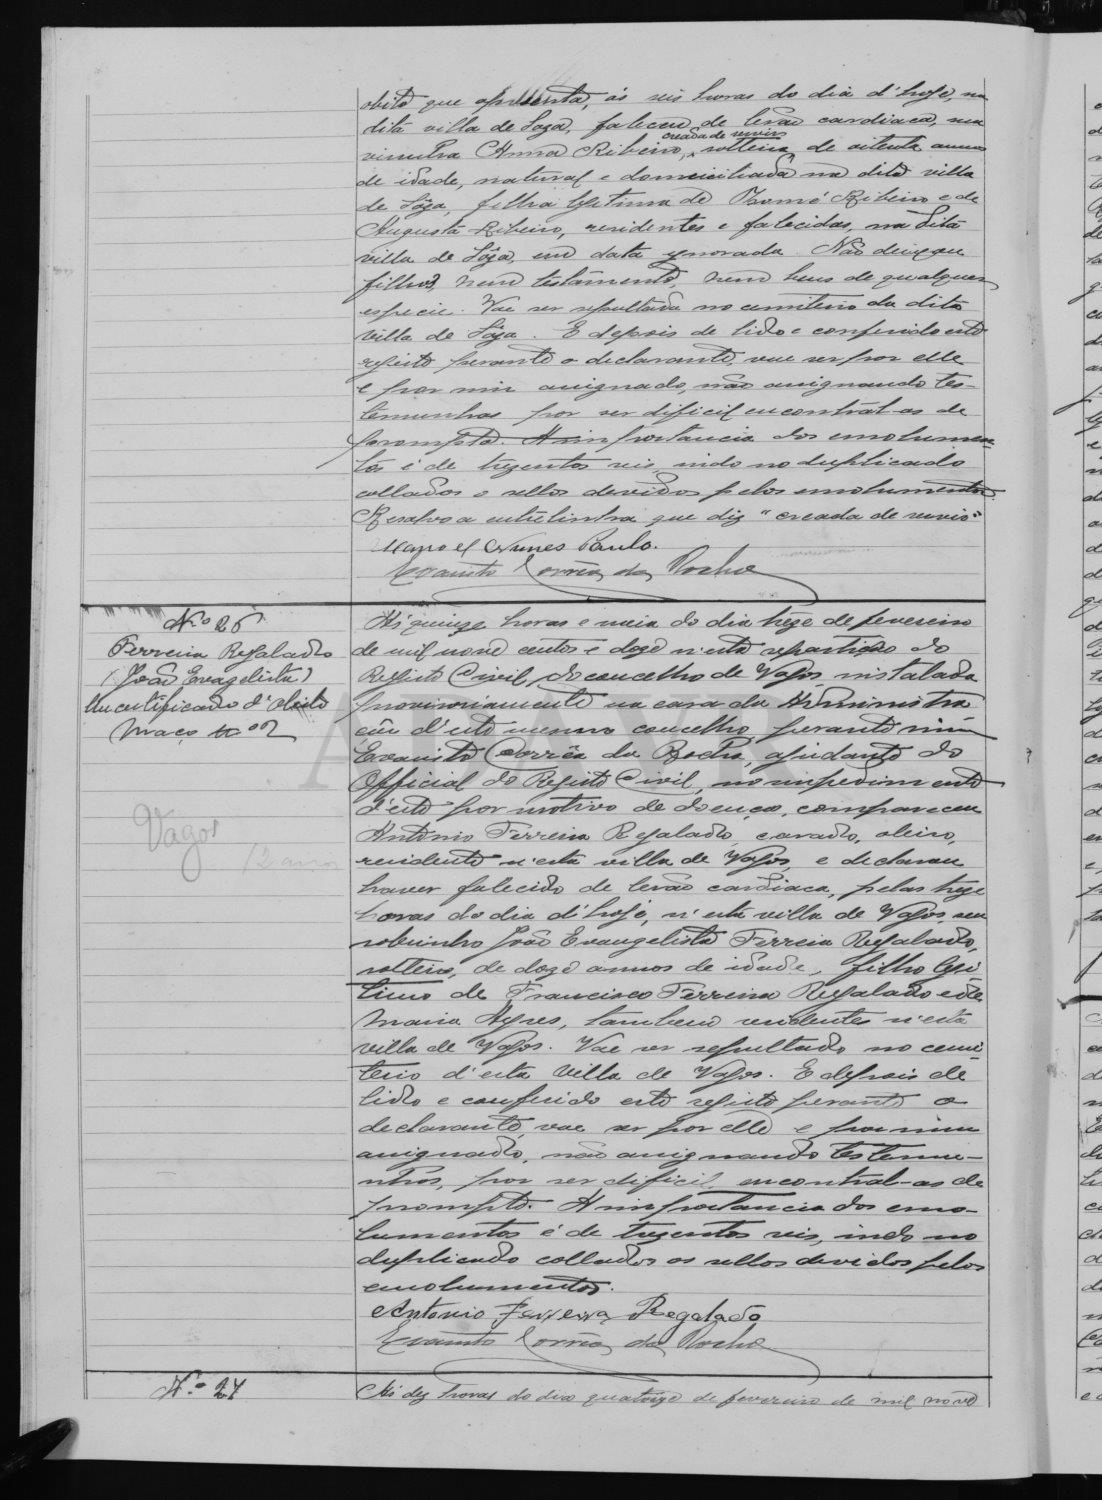 obito que apresenta, ás seis horas do dia d'hoje, na
dita villa de Soza, faleceu de lesão cardiaca, sua
creada de servir
visinha Anna Ribeiro, solteira de oitenta annos
de idade, natural e domiciliada na dita villa
de Sôza, filha legitima de Thomé Ribeiro e de
Augusta Ribeiro, residentes e falecidos, na dita
villa de Sôza, em data ignorada. Não deixou
filhos, nem testamento, nem bens de qualquer
especie. Vae ser sepultada no cemiterio da dita
villa de Sôza. E depois de lido e conferido este
registo perante o declarante, vae ser por elle
e por mim assignado, não assignando tes-
temunhas por ser dificil encontral-as de
prompto. A importancia dos emolumen-
tos é de trezentos reis, indo no duplicado
collados os sellos devidos pelos emolumentos.
Resalvo a entrelinha que diz "creada de servir"
Manoel Nunes Paulo.
Evaristo Corrêa da Rocha
Nº 26
Ferreira Regalado
(João Evangelista)
Um certificado d'obito
Maço nº 2
Vagos
12 annos
Ás quinze horas e meia do dia treze de fevereiro
de mil nove centos e doze n'esta repartição do
Registo Civil do concelho de Vagos, installada
provisoriamente na casa da Administra
ção d'este mesmo concelho, perante mim
Evaristo Corrêa da Rocha, ajudante do
Official do Registo Civil, no impedimento
d'este por motivo de doença, compareceu
Antonio Ferreira Regalado, casado, oleiro,
residente n'esta villa de Vagos, e declarou
haver falecido de lesão cardiaca, pelas treze
horas do dia d'hoje, n'esta villa de Vagos, seu
sobrinho João Evangelista Ferreira Regalado,
solteiro, de doze annos de idade, filho legi-
timo de Francisco Ferreira Regalado e de
Maria Ayres, tambem residentes n'esta
villa de Vagos. Vae ser sepultado no cemi-
terio d'esta villa de Vagos. E depois de
lido e conferido este registo perante o
declarante, vae ser por elle e por mim
assignado, não assignando testemu-
nhas, por ser dificil encontral-as de
prompto. A importancia dos emo-
lumentos é de trezentos reis, indo no
duplicado collados os sellos devidos pelos
emolumentos.
Antonio Ferreira Regalado
Evaristo Corrêa da Rocha
N.º 27
Ás dez horas do dia quatorze de fevereiro de mil nove